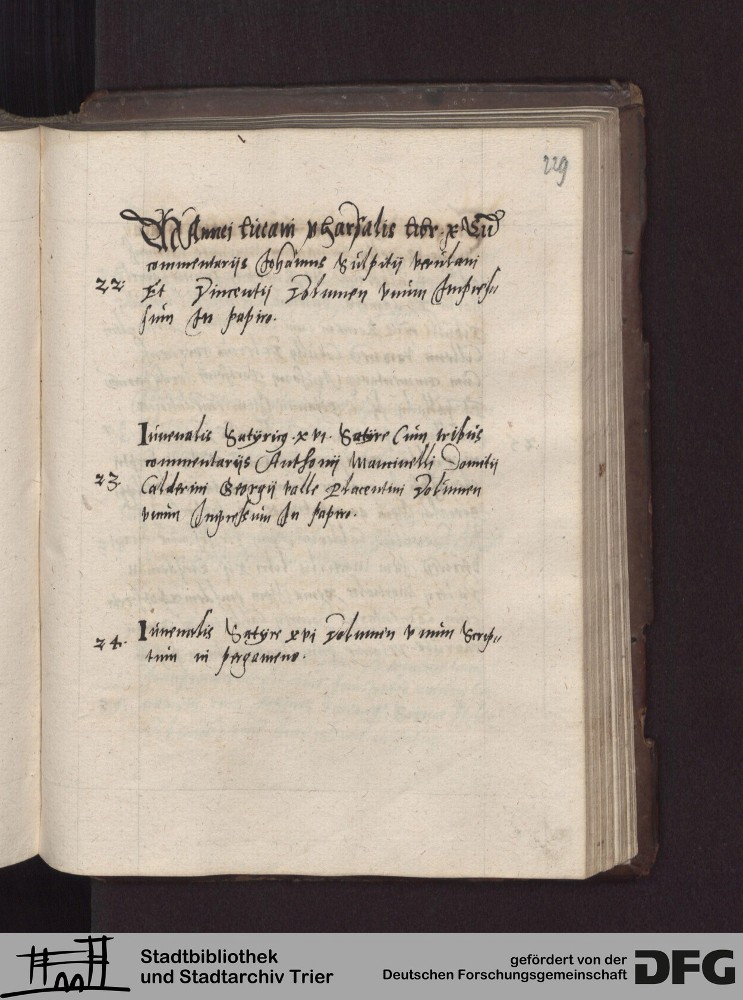 229
M Annei lucani pharsalis libr. x Cũ
commentarijs Johannis Sulpitij verulani
22. Et Vincentij Volumen vnum Impreſ„
ſum In papiro.
Iuuenalis Satyrice . xvi . Satyre Cum tribus
commentarijs Anthonij Mancinelli Domitij
23. Calderini Georgij valle Placentini Volumen
vnum Impreſsum In papiro.
Iuuenalis Satyre xvi Volumen vnum Scrip„
24. tum in pergameno.
Stadtbibliothek
und Stadtarchiv Trier
gefördert von der
Deutschen Forschungsgemeinschaft
DFG